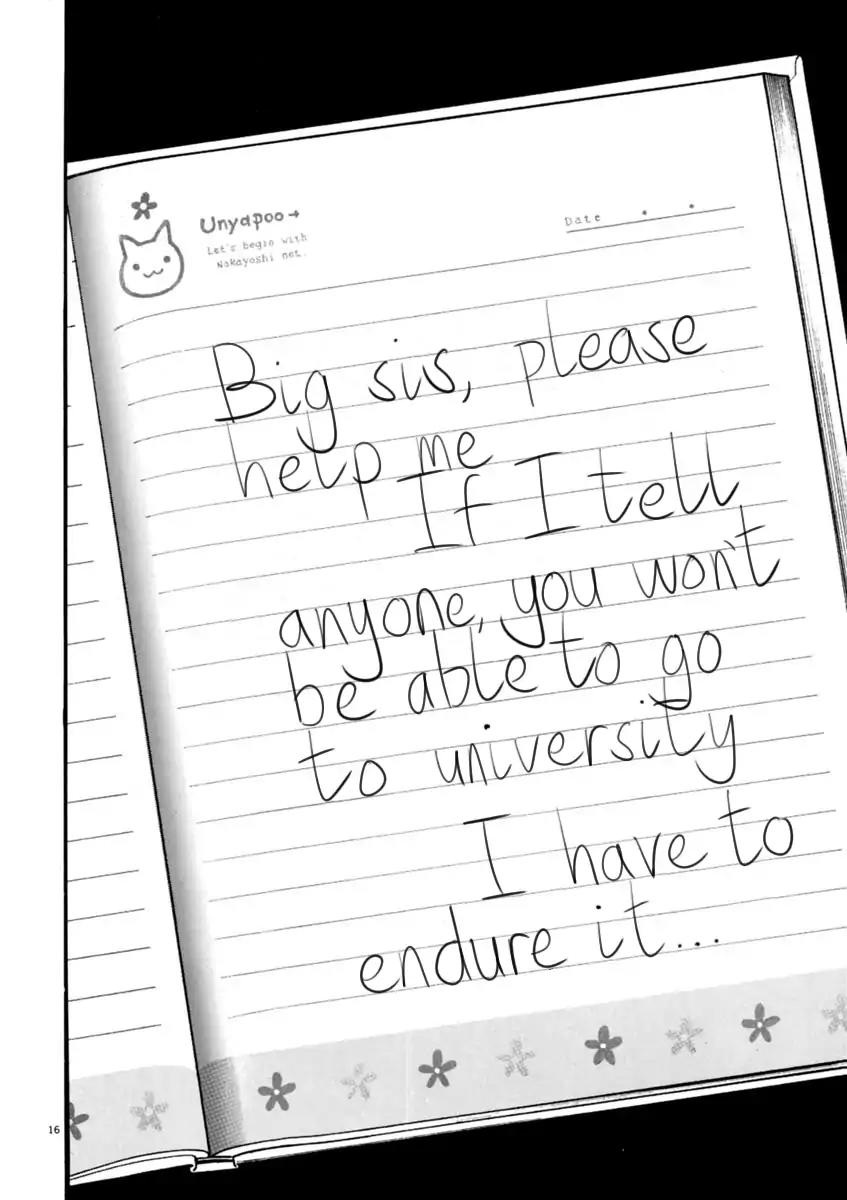 Unyapoo→
Let's begin with
Nakayoshi net.
Date . .
Big sis, please
help me
If I tell
anyone, you won't
be able to go
to university
I have to
endure it...
16